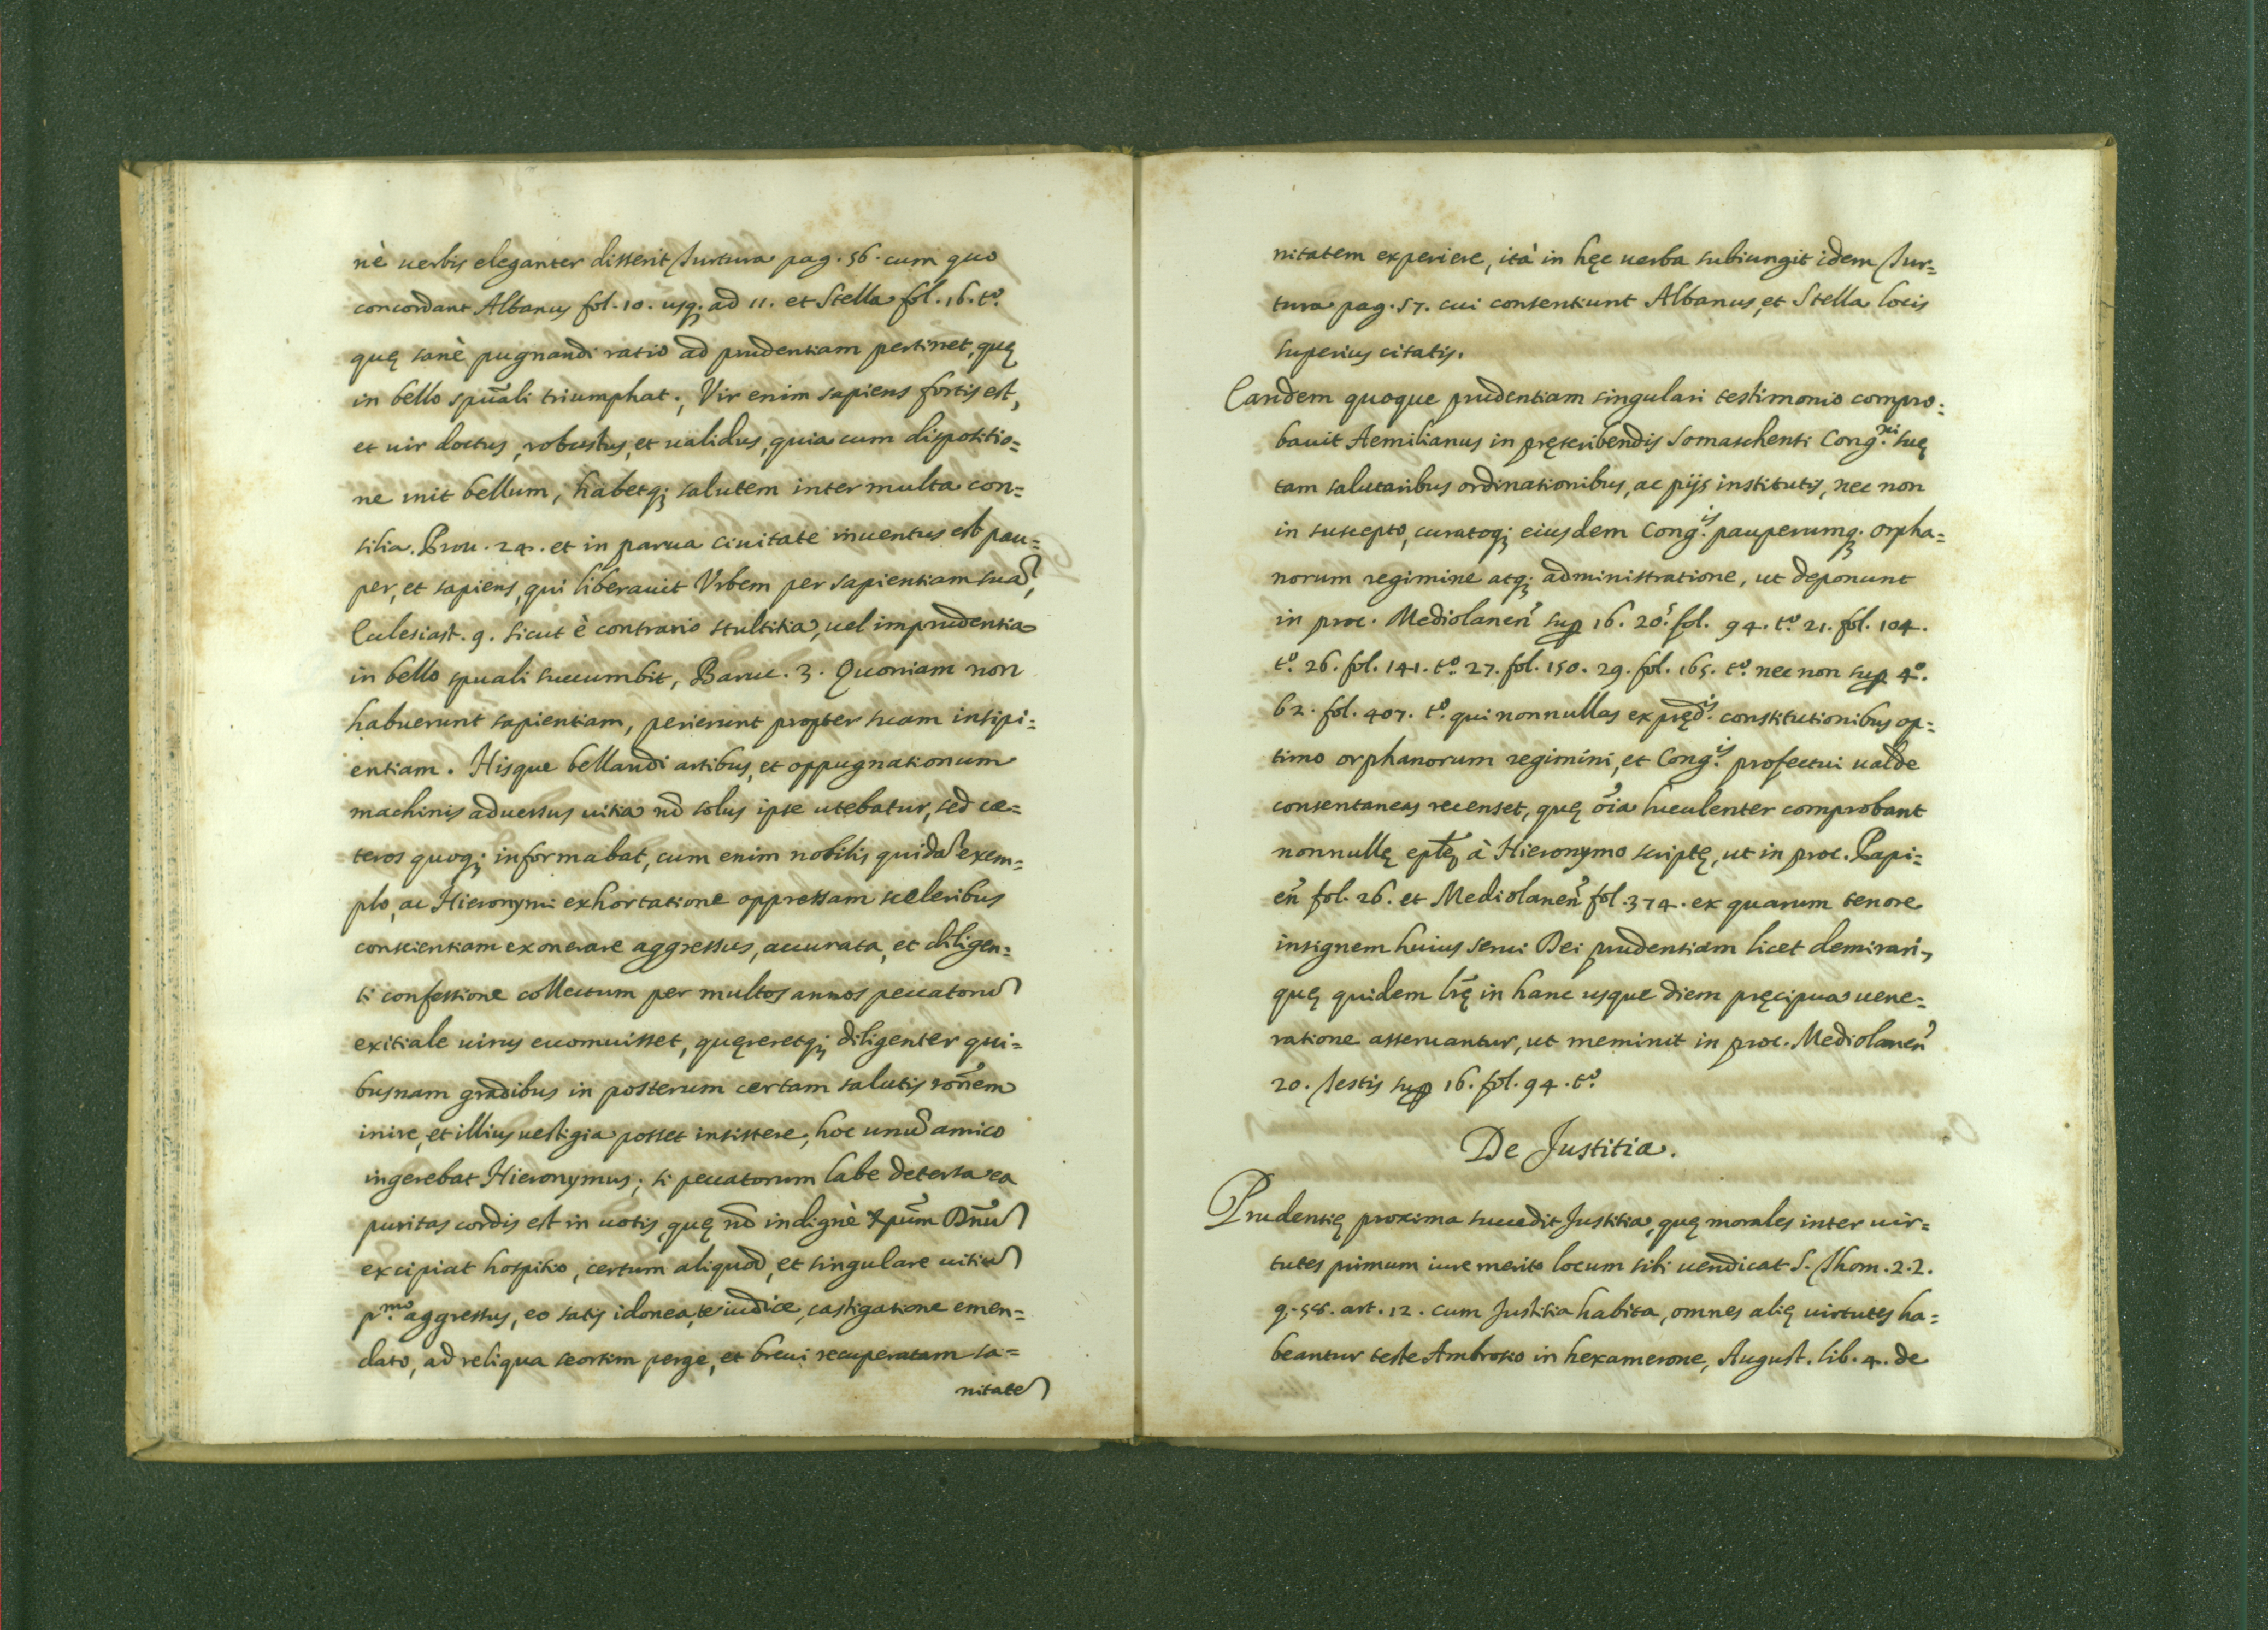 nè uerbis eleganter disserit Turtura pag. 56. cum quo
concordant Albanus fol. 10. usq; ad 11. et Stella fol. 16. t.º
quę sanè pugnandi ratio ad prudentiam pertinet, quę
in bello spũali triumphat., Vir enim sapiens fortis est,
et uir doctus, robustus, et ualidus, quia cum dispositio=
ne init bellum, habetq; salutem inter multa con=
silia. Prou. 24. et in parua ciuitate inuentus est pau=
per, et sapiens, qui liberauit Vrbem per sapientiam suã,
Eclesiast. 9. sicut è contrario stultitia, uel imprudentia
in bello spuali succumbit, Baruc. 3. Quoniam non
habuerunt sapientiam, perierunt propter suam insipi=
entiam. Hisque bellandi artibus, et oppugnationum
machinis aduersus uitia nõ solus ipse utebatur, sed cæ=
teros quoq; informabat, cum enim nobilis quidã exem=
plo, ac Hieronymi exhortatione oppressam sceleribus
conscientiam exonerare aggressus, accurata, et diligen=
ti confessione collectum per multos annos peccatorũ
exitiale uirus euomuisset, quęreretq; diligenter qui=
busnam gradibus in posterum certam salutis rõnem
inire, et illius uestigia posset insistere, hoc unũ amico
ingerebat Hieronymus; si peccatorum labe detersa ea
puritas cordis est in uotis, quę nõ indignè Xpũm Dñũ
excipiat hospitio, certum aliquod, et singulare uitiũ
p.ᵐᵒ aggressus, eo satis idonea, te iudice, castigatione emen=
dato, ad reliqua seorsim perge, et breui recuperatam sa=
nitatẽ
nitatem experiere, ità in hęc uerba subiungit idem Tur=
tura pag. 57. cui consentiunt Albanus, et Stella locis
superius citatis.
Eandem quoque prudentiam singulari testimonio compro=
bauit Aemilianus in pręscribendis Somaschensi Cong.ⁿⁱ suę
tam salutaribus ordinationibus, ac pijs institutis, nec non
in suscepto, curatoq; eiusdem Cong.ⁱˢ pauperumq; orpha=
norum regimine atq; administratione, ut deponunt
in proc. Mediolaneñ sup 16. 20.ˢ fol. 94. t.º 21. fol. 104.
t.º 26. fol. 141. t.º 27. fol. 150. 29. fol. 165. t.º nec non sup 4.º
62. fol. 407. t.º qui nonnullas ex pręd.ⁱˢ constitutionibus op=
timo orphanorum regimini, et Cong.ⁱˢ profectui ualde
consentaneas recenset, quę õia luculenter comprobant
nonnullę eplę à Hieronymo scriptę, ut in proc. Papi=
eñ fol. 26. et Mediolaneñ fol. 374. ex quarum tenore
insignem huius serui Dei prudentiam licet demirari,
quę quidem lrę in hanc usque diem pręcipua uene=
ratione asseruantur, ut meminit in proc. Mediolaneñ
20. Testis sup 16. fol. 94. t.º
De Justitia.
Prudentię proxima succedit Justitia, quę morales inter uir=
tutes primum iure merito locum sibi uendicat S. Thom. 2.2.
q. 58. art. 12. cum Justitia habita, omnes alię uirtutes ha=
beantur teste Ambrosio in hexamerone, August. lib. 4. de